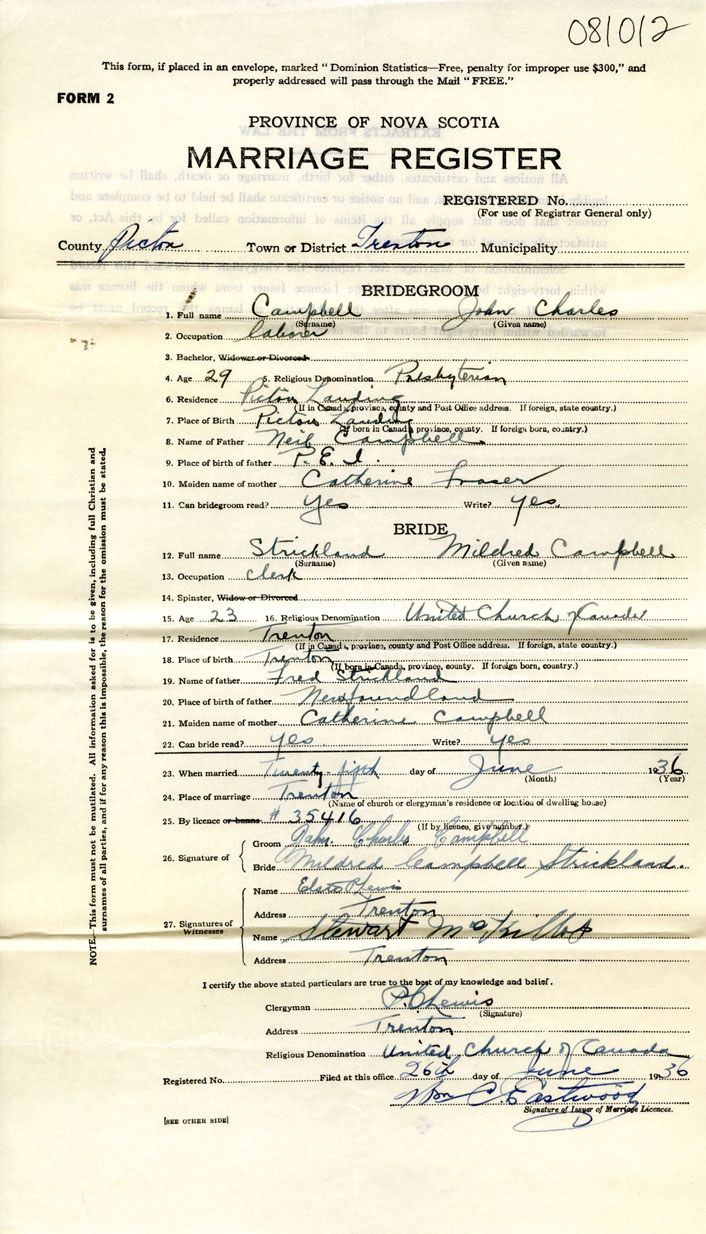 081012
This form, if placed in an envelope, marked "Dominion Statistics—Free, penalty for improper use $300," and
properly addressed will pass through the Mail "FREE."
FORM 2
PROVINCE OF NOVA SCOTIA
MARRIAGE REGISTER
REGISTERED No.
(For use of Registrar General only)
County Pictou Town or District Trenton Municipality
BRIDEGROOM
1. Full name Campbell John Charles
(Surname) (Given name)
2. Occupation laborer
3. Bachelor, Widower or Divorced
4. Age 29 5. Religious Denomination Presbyterian
6. Residence Pictou Landing
(If in Canada, province, county and Post Office address. If foreign, state country.)
7. Place of Birth Pictou Landing
(If born in Canada, province, county. If foreign born, country.)
8. Name of Father Neil Campbell
9. Place of birth of father P.E.I.
10. Maiden name of mother Catherine Fraser
11. Can bridegroom read? Yes Write? Yes
BRIDE
12. Full name Strickland Mildred Campbell
(Surname) (Given name)
13. Occupation Clerk
14. Spinster, Widow or Divorced
15. Age 23 16. Religious Denomination United Church of Canada
17. Residence Trenton
(If in Canada, province, county and Post Office address. If foreign, state country.)
18. Place of birth Trenton
(If born in Canada, province, county. If foreign born, country.)
19. Name of father Fred Strickland
20. Place of birth of father Newfoundland
21. Maiden name of mother Catherine Campbell
22. Can bride read? Yes Write? Yes
23. When married Twenty-fifth day of June 1936
(Month) (Year)
24. Place of marriage Trenton
(Name of church or clergyman's residence or location of dwelling house)
25. By licence or banns # 35416
(If by licence, give number)
26. Signature of Groom John Charles Campbell
Bride Mildred Campbell Strickland.
27. Signatures of Witnesses
Name
Address Trenton
Name Stewart
Address Trenton
I certify the above stated particulars are true to the best of my knowledge and belief.
Clergyman
(Signature)
Address Trenton
Religious Denomination United Church of Canada
Registered No. Filed at this office 26th day of June 1936
Wm C. Eastwood
Signature of Issuer of Marriage Licences.
[SEE OTHER SIDE]
NOTE.—This form must not be mutilated. All information asked for is to be given, including full Christian and
surnames of all parties, and if for any reason this is impossible, the reason for the omission must be stated.